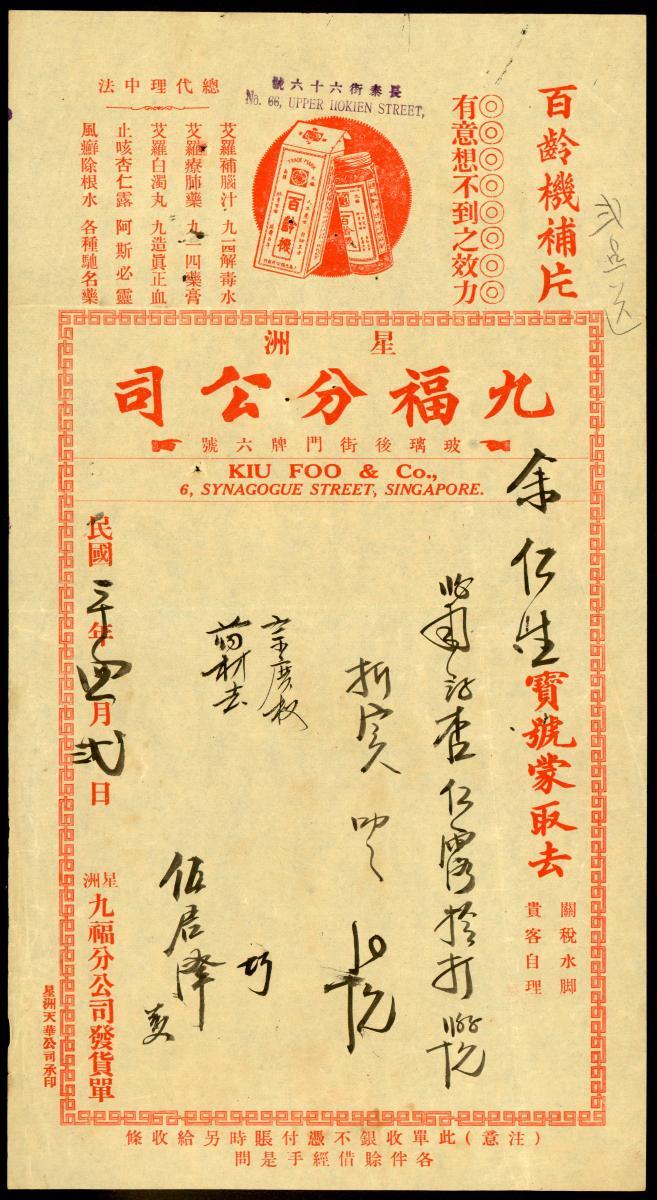 百齡機補片
◎◎◎◎◎◎◎◎
有意想不到之效力
長泰街六十六號
No. 66, UPPER HOKIEN STREET,
TRADE MARK
百齡機
百齡機
總代理中法
艾羅補腦汁 九一四解毒水
艾羅療肺藥 九一四藥膏
艾羅白濁丸 九造眞正血
止咳杏仁露 阿斯必靈
風癬除根水 各種馳名藥
星洲
九福分公司
玻璃後街門牌六號
KIU FOO & Co.,
6, SYNAGOGUE STREET, SINGAPORE.
余仁生寶號蒙取去
關稅水脚
貴客自理
杏仁露拾打
折實
藥材去
伍居澤
民國 年四月弍日
星洲九福分公司發貨單
星洲天華公司承印
(注意)此單收銀不憑付賬時另給收條
各伴賒借經手是問